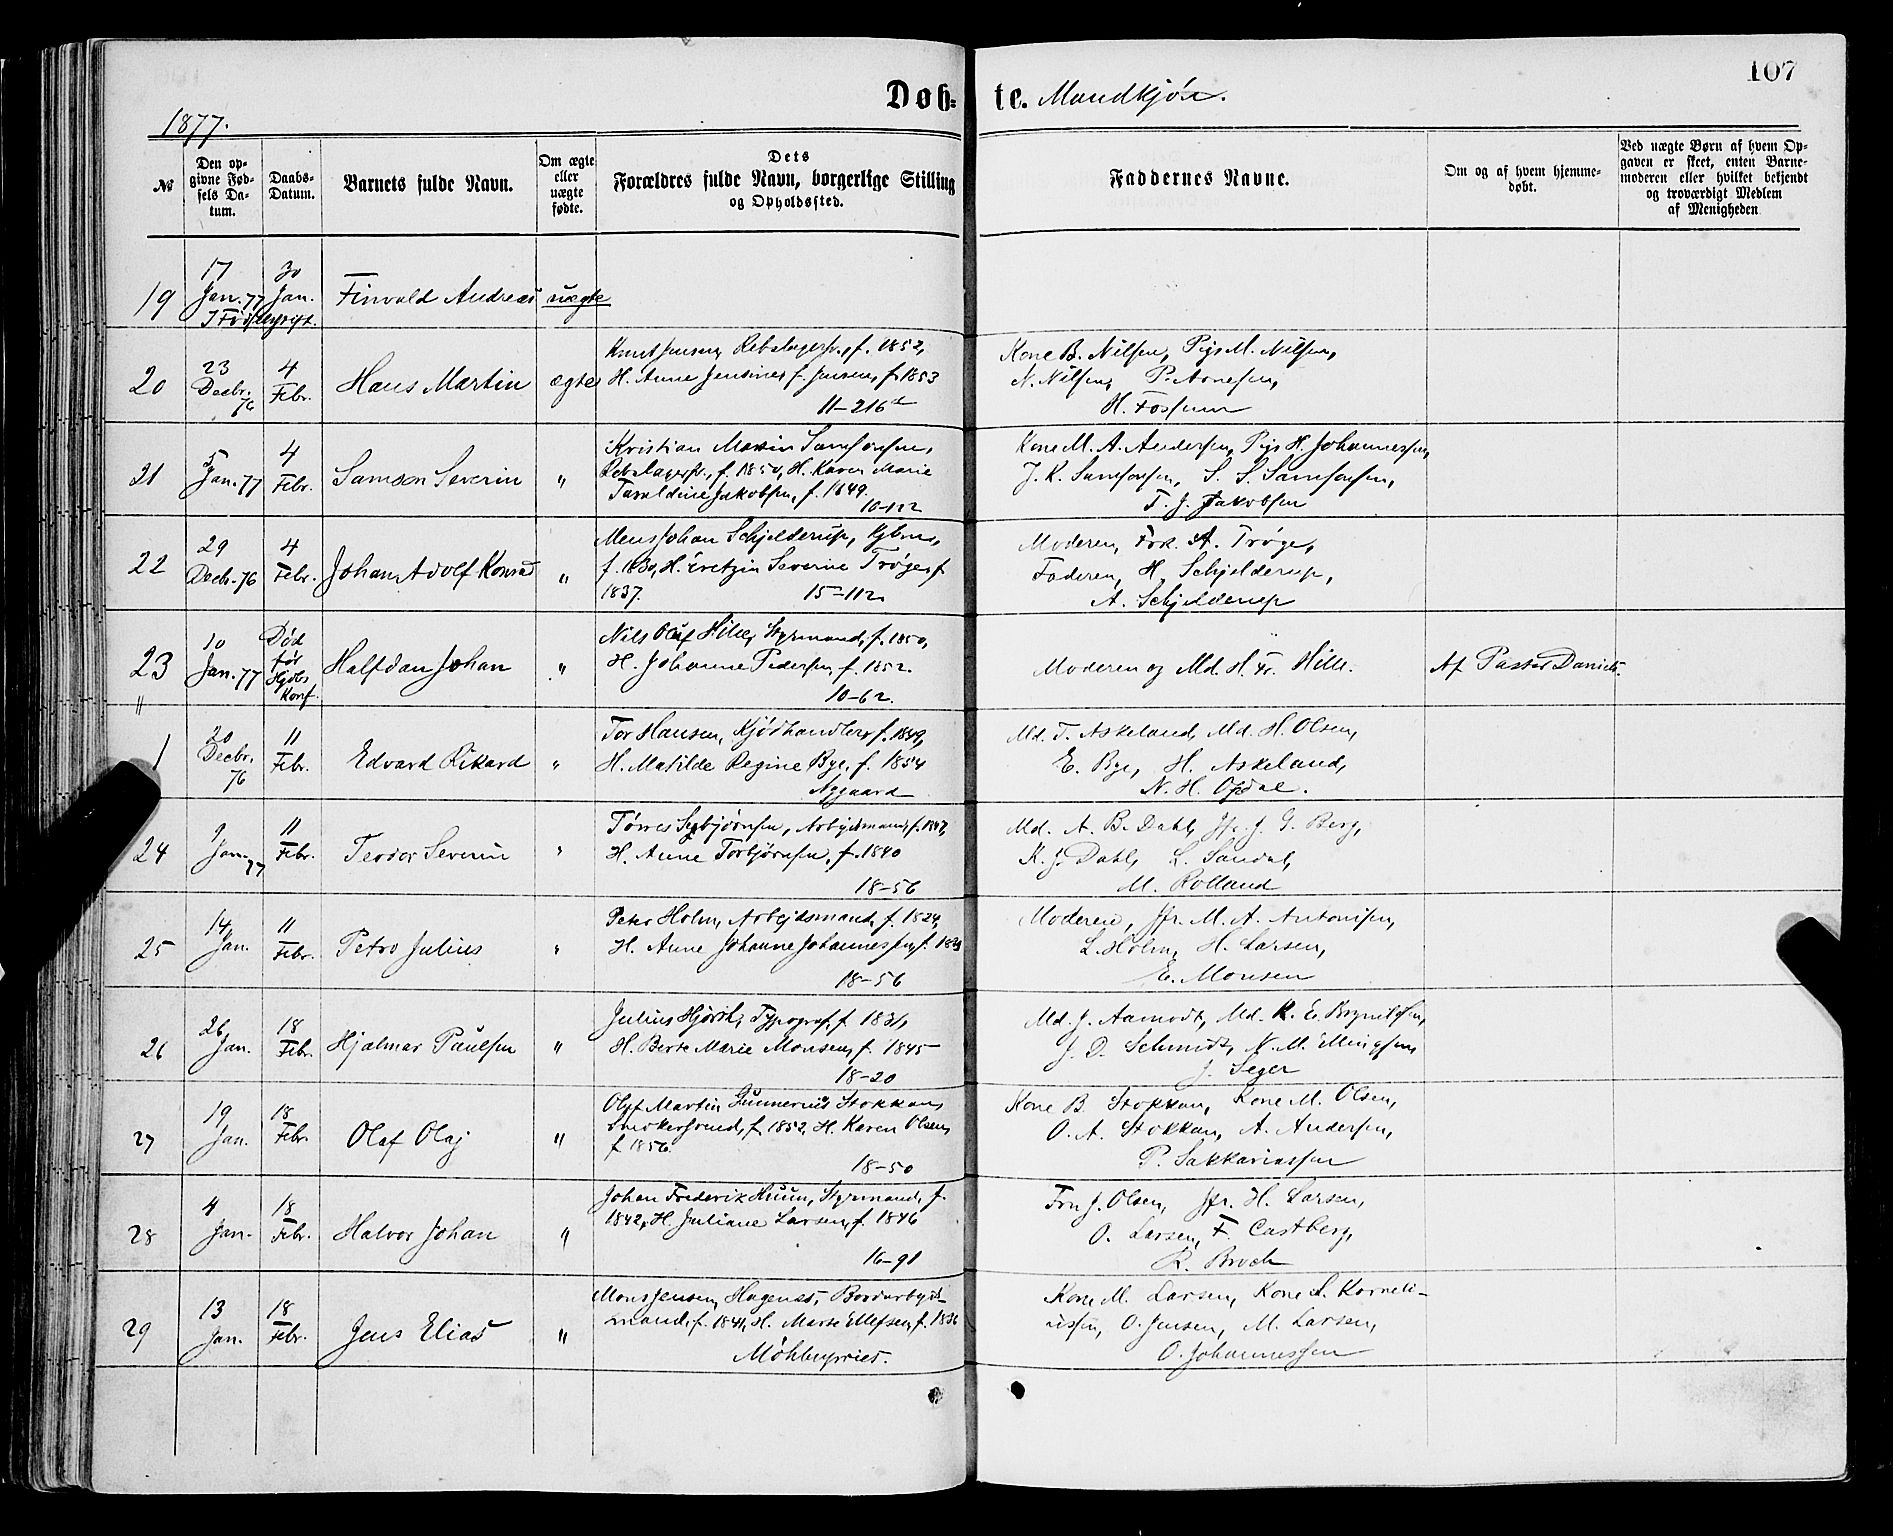 107
Døb-te. Mandkjøn.
1877.
№
Den op-
givne Fød-
sels Da-
tum.
Daabs-
Datum.
Barnets fulde Navn.
Om ægte
eller
uægte
fødte.
Dets
Forældres fulde Navn, borgerlige Stilling
og Opholdssted.
Faddernes Navne.
Om og af hvem hjemme-
døbt.
Ved uægte Børn af hvem Op-
gaven er skeet, enten Barne-
moderen eller hvilket bekjendt
og troværdigt Medlem
af Menigheden
19
17
Jan. 77
30
Jan.
Finvald Andreas
uægte
20
23
Decbr.
76
4
Febr.
Hans Martin
ægte
Knut Jensen, Rebslagersv., f. 1852,
H. Anne Jensine f. Jensen, f. 1853
11-216
Kone B. Nilsen, Pige M. Nilsen,
N. Nilsen, P. Arnesen,
H. Fossum
21
5
Jan. 77
4
Febr.
Samson Severin
"
Kristian Martin Samsonsen,
Rebslagersv., f. 1850, H. Karen Marie
Taraldine Jakobsen, f. 1849.
10-112
Kone M. A. Andersen, Pige H. Johannessen,
J. K. Samsonsen, S. S. Samsonsen,
T. J. Jakobsen
22
29
Decb. 76
4
Febr.
Johan Adolf Konrad
"
Mens Johan Schjelderup, Kjbm.,
f. 1830, H. Severine Trøge, f
1837.
15-112
Moderen, Frk. A. Trøge,
Faderen, H. Schjelderup,
A. Schjelderup
23
"
10
Jan. 77
Død
før
Hjbs
konf.
Halfdan Johan
"
Nils Oluf Hille, Styrmand, f. 1850,
H. Johanne Pedersen, f. 1852.
10-62.
Moderen og Md. H. Fr. Hille.
Af Pastor Daniels.
20
Decbr.
76
11
Febr.
Edvard Rikard
"
Tor Hansen, Kjødhandler, f. 1849,
H. Matilde Regine Bye, f. 1854
Nygaard
Md. T. Askeland, Md. H. Olsen,
E. Bye, H. Askeland,
N. H. Opdal.
24
Jan. 77
11
Febr.
Teodor Severin
"
Tørres Sebjørnsen, Arbejdsmand, f. 1847,
H. Anne Torbjørnsen, f. 1840
18-56
Md. A. B. Dahl, Jfr. J. G. Berg,
K. J. Dahl, L. Sandal,
M. Rolland
25
14
Jan.
11
Febr.
Petro Julius
"
Peter Holm, Arbejdsmand, f. 1824,
H. Anne Johanne Johannessen, f.
18-56
Moderen, Jfr. M. A. Antonisen,
L. Holm, H. Larsen,
E. Monsen
26
26
Jan.
18
Febr.
Hjalmar Paulsen
"
Julius Hjorth, Typograf, f. 1831,
H. Berte Marie Monsen, f. 1845
18-20
Md. J. Aamodt, Md. K. E. Brynildsen,
J. D. Schmidt, N. M. Ellingsen,
J. Seger
27
19
Jan.
18
Febr.
Olaf Olaj
"
Olaf Martin Gunnerius Stokkan,
Snedkersvend, f. 1852, H. Karen Olsen,
f. 1856.
18-50
Kone B. Stokkan, Kone M. Olsen,
O. A. Stokkan, A. Andersen,
P. Sakkariassen
28
4
Jan.
18
Febr.
Halvor Johan
"
Johan Frederik Huun, Styrmand, f.
1842, H. Juliane Larsen, f. 1846
16-91
Fru J. Olsen, Jfr. H. Larsen,
O. Larsen, F. Castberg,
R. Broch
29
13
Jan.
18
Febr.
Jens Elias
"
Mons Jensen Hagenæs, Bordarbejds-
mand, f. 1841, H. Marte Ellefsen, f. 1836
Møhlenpriis.
Kone M. Larsen, Kone L. Korneli-
ussen, O. Jensen, M. Larsen,
O. Johannessen